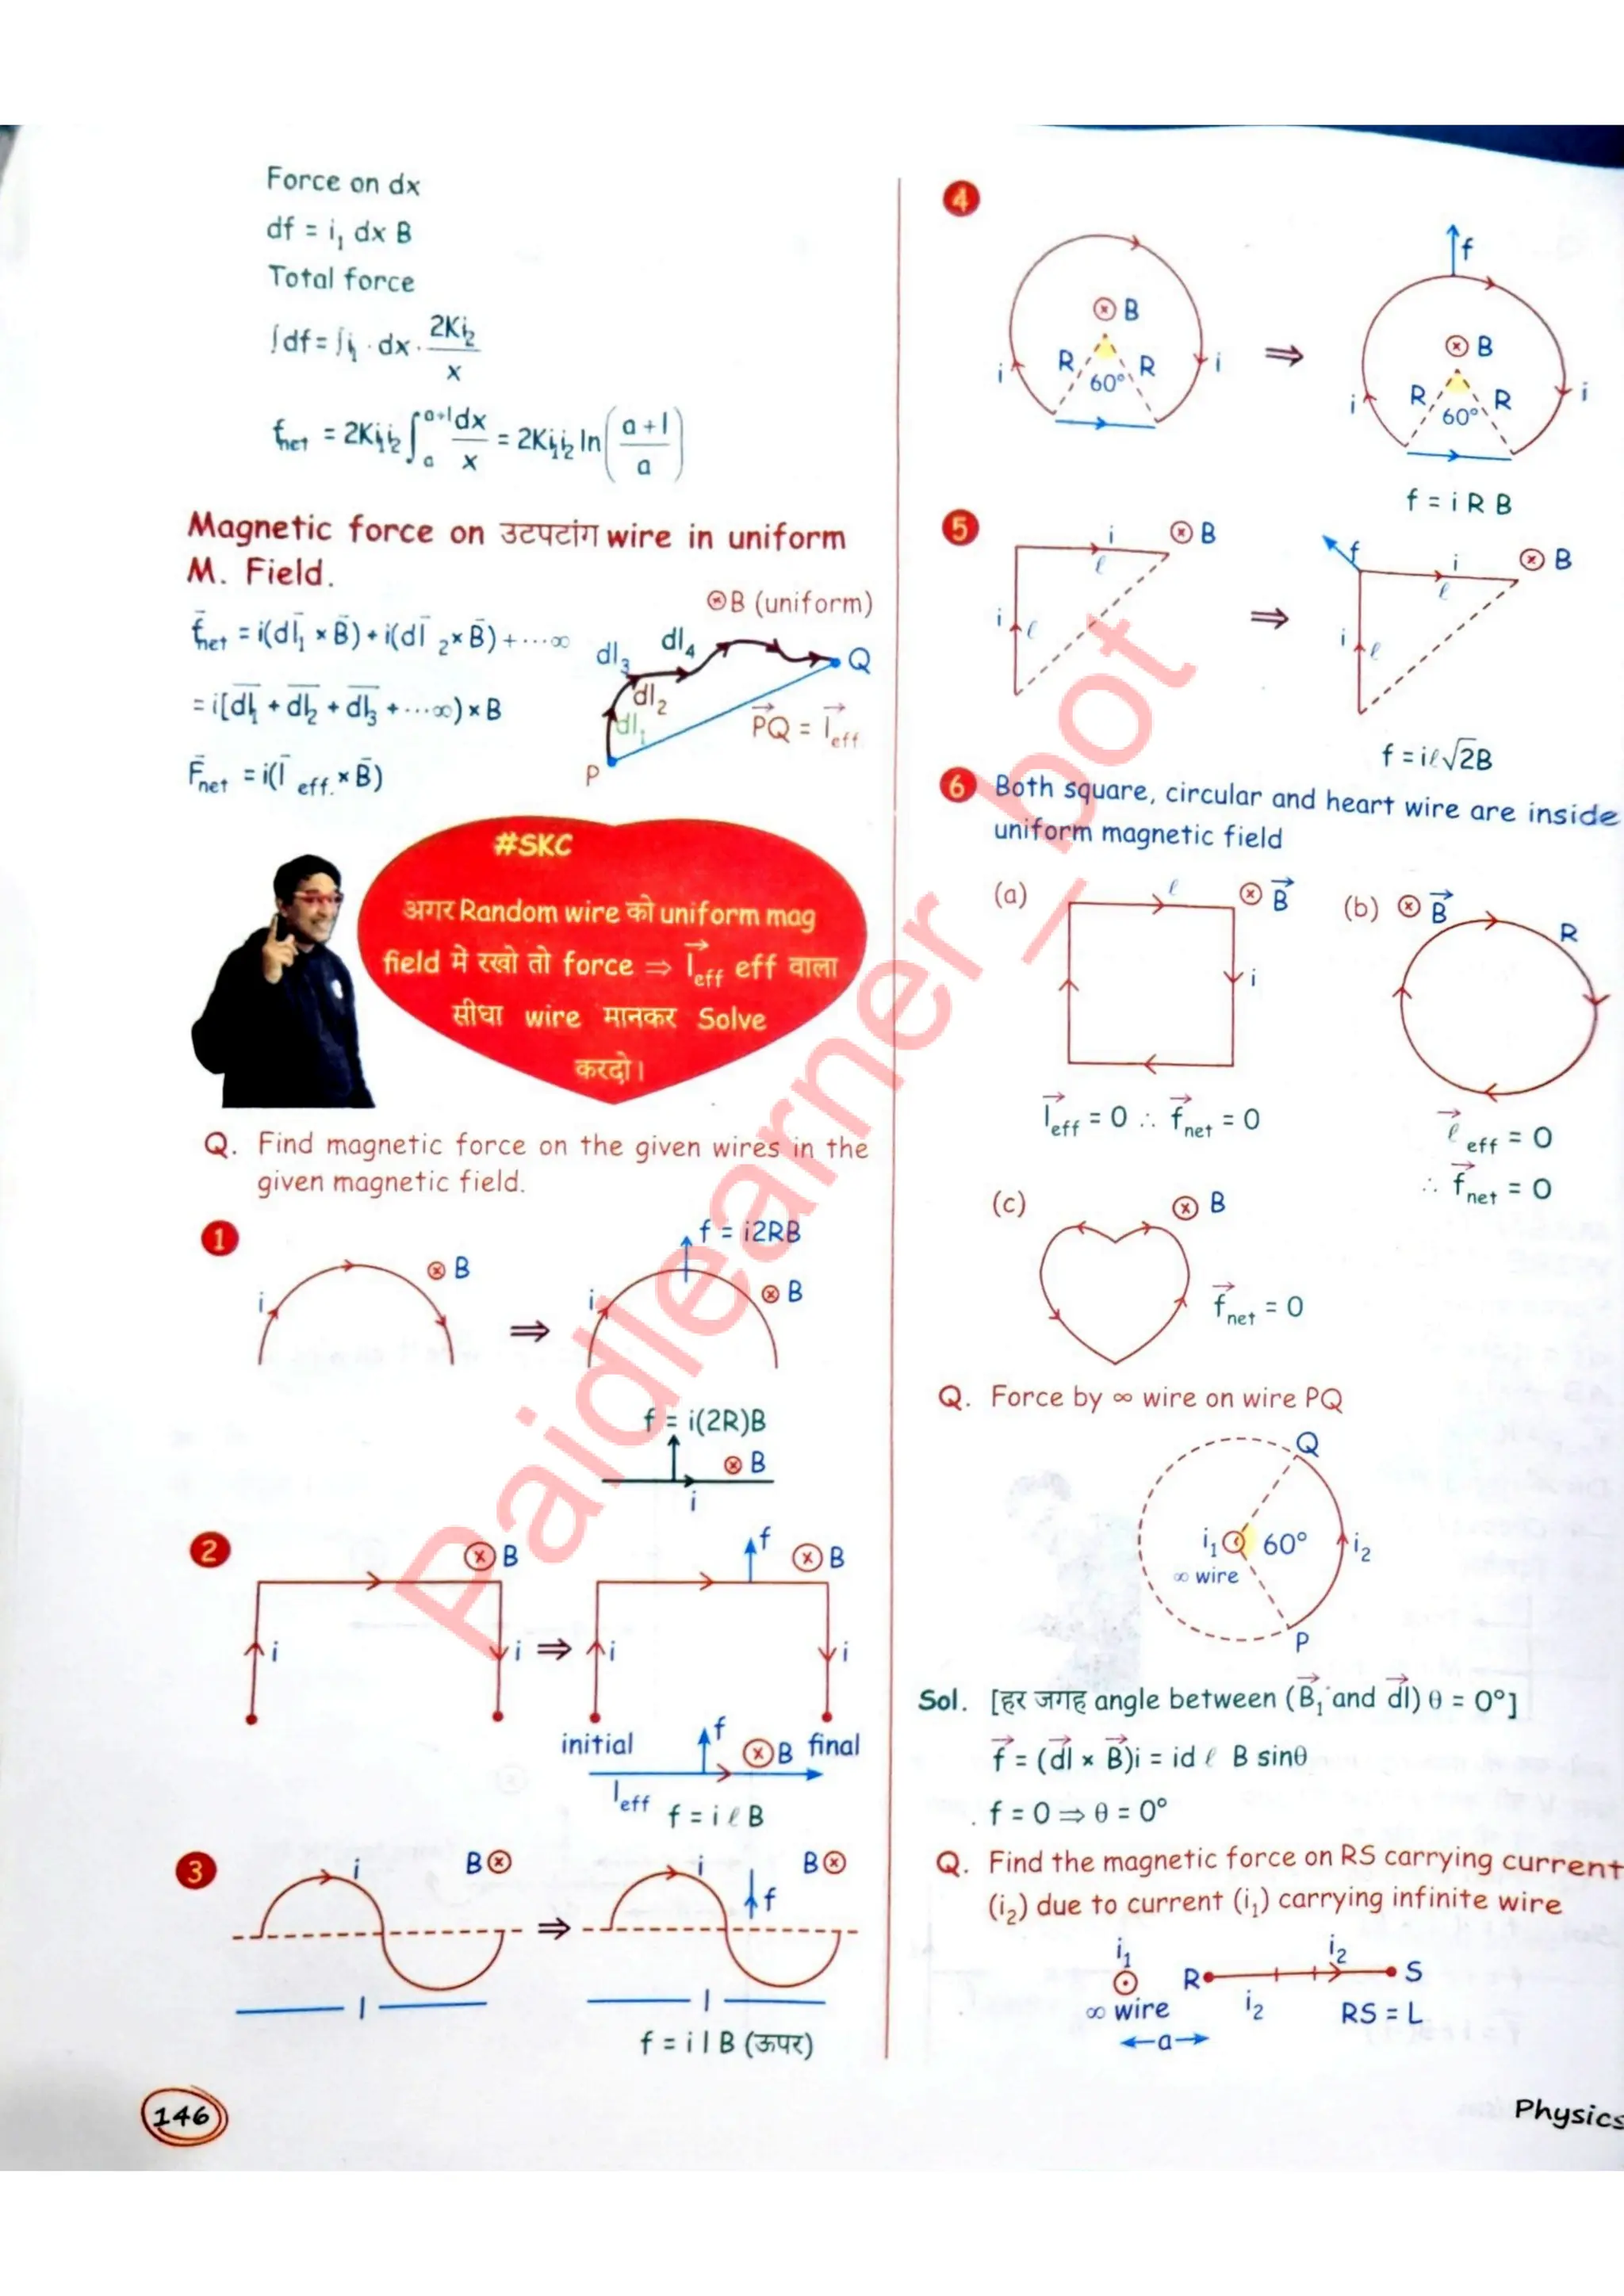 Force on dx
df = i₁ dx B
Total force
∫df = ∫i₁ · dx · 2Ki₂/x
f_net = 2Ki₁i₂ ∫_a^{a+l} dx/x = 2Ki₁i₂ ln((a+l)/a)
Magnetic force on उटपटांग wire in uniform
M. Field.
⊗B (uniform)
f̄_net = i(dl̄₁ × B̄) + i(dl̄ ₂ × B̄) + ···∞
= i[dl̄₁ + dl̄₂ + dl̄₃ + ···∞) × B
F̄_net = i(l̄ eff. × B̄)
dl₁
dl₂
dl₃
dl₄
P
Q
PQ⃗ = l⃗_eff.
#SKC
अगर Random wire को uniform mag
field में रखो तो force ⇒ l⃗_eff eff वाला
सीधा wire मानकर Solve
करदो।
Q. Find magnetic force on the given wires in the
given magnetic field.
1
i
⊗ B
⇒
f = i2RB
i
⊗ B
f = i(2R)B
⊗ B
i
2
⊗ B
i
i
⇒
f
⊗ B
i
i
initial
f
⊗B
final
l_eff
f = i ℓ B
3
i
B⊗
l
⇒
i
B⊗
f
l
f = i l B (ऊपर)
146
4
⊗ B
R
R
60°
i
i
⇒
f
⊗ B
R
R
60°
i
i
f = i R B
5
i
⊗ B
ℓ
i
ℓ
⇒
f
i
⊗ B
ℓ
i
ℓ
f = iℓ√2B
6 Both square, circular and heart wire are inside
uniform magnetic field
(a)
ℓ
⊗ B⃗
i
l⃗_eff = 0 ∴ f⃗_net = 0
(b) ⊗ B⃗
R
ℓ⃗ eff = 0
∴ f⃗_net = 0
(c)
⊗ B
f⃗_net = 0
Q. Force by ∞ wire on wire PQ
Q
i₁
60°
i₂
∞ wire
P
Sol. [हर जगह angle between (B⃗₁ and dl⃗) θ = 0°]
f⃗ = (dl⃗ × B⃗)i = id ℓ B sinθ
f = 0 ⇒ θ = 0°
Q. Find the magnetic force on RS carrying current
(i₂) due to current (i₁) carrying infinite wire
i₁
i₂
R
S
∞ wire
i₂
RS = L
a
Physics
Paidlearner_bot